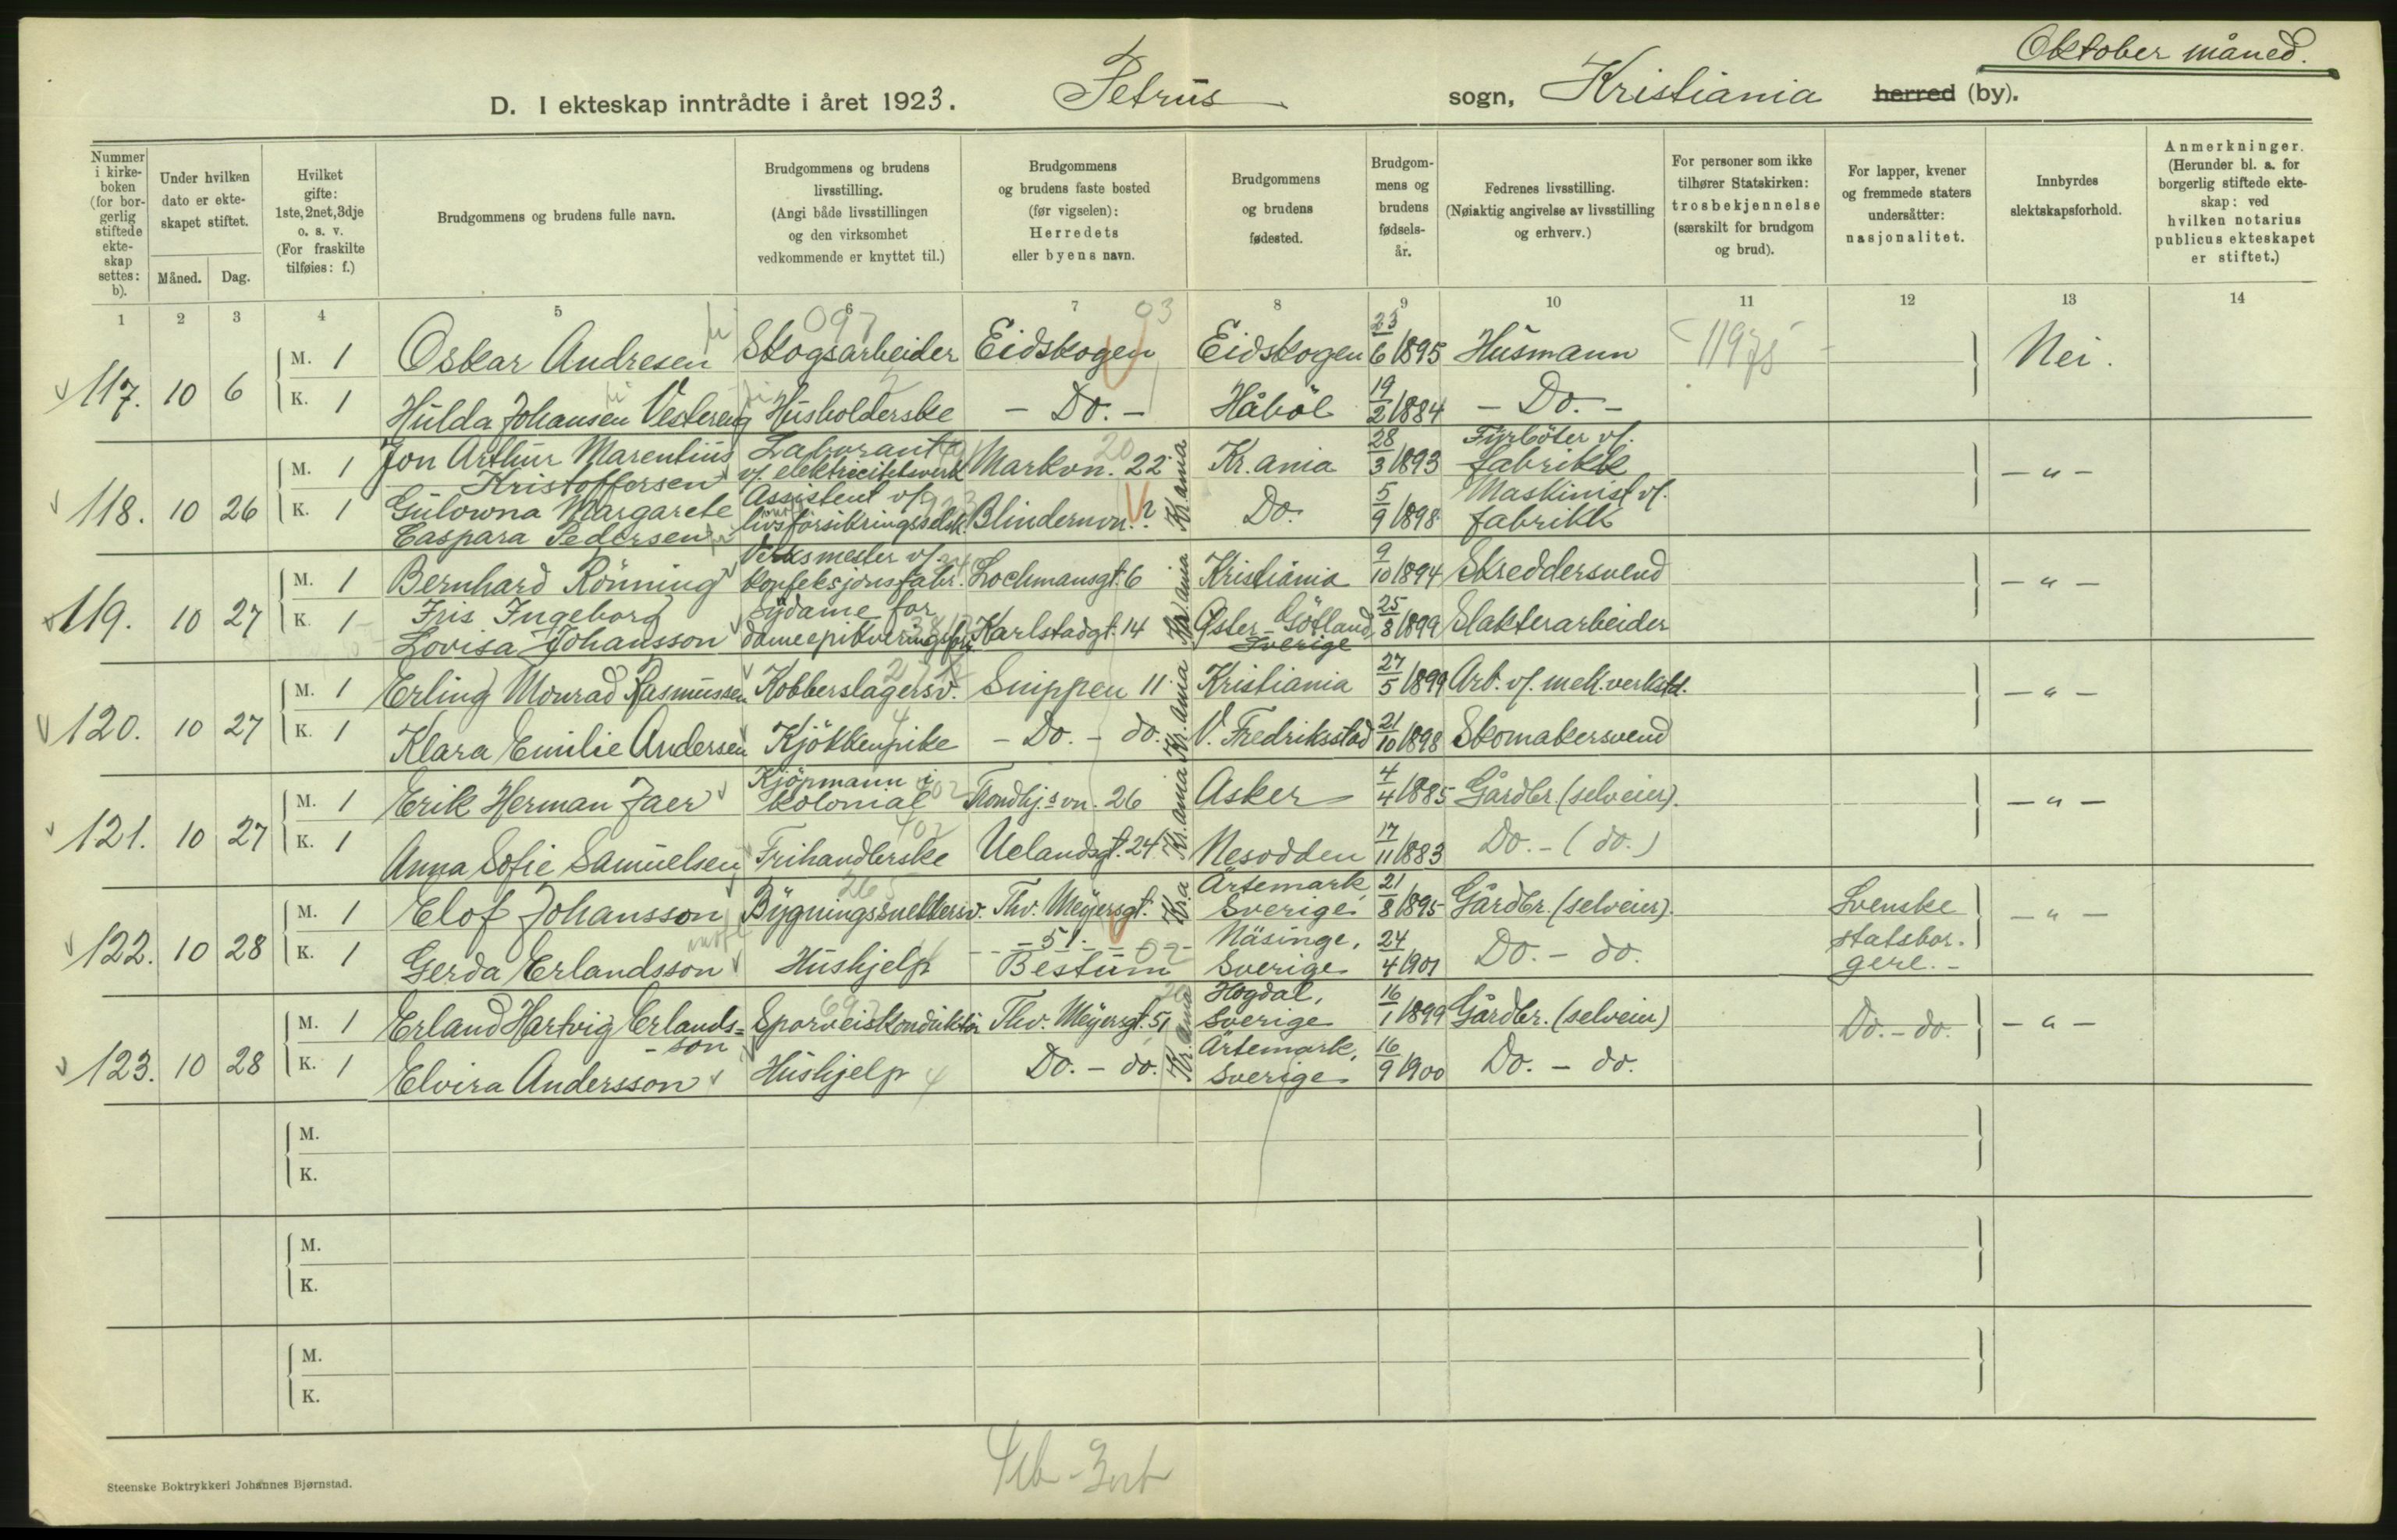 Oktober måned.
D. I ekteskap inntrådte i året 1923. Petrus sogn, Kristiania herred (by).
Nummer i kirkeboken (for borgerlig stiftede ekteskap settes: b).
Under hvilken dato er ekteskapet stiftet.
Måned. Dag.
Hvilket gifte: 1ste, 2net, 3dje o. s. v. (For fraskilte tilføies: f.)
Brudgommens og brudens fulle navn.
Brudgommens og brudens livsstilling. (Angi både livsstillingen og den virksomhet vedkommende er knyttet til.)
Brudgommens og brudens faste bosted (før vigselen): Herredets eller byens navn.
Brudgommens og brudens fødested.
Brudgommens og brudens fødselsår.
Fedrenes livsstilling. (Nøiaktig angivelse av livsstilling og erhverv.)
For personer som ikke tilhører Statskirken: trosbekjennelse (særskilt for brudgom og brud).
For lapper, kvener og fremmede staters undersåtter: nasjonalitet.
Innbyrdes slektskapsforhold.
Anmerkninger. (Herunder bl. a. for borgerlig stiftede ekteskap: ved hvilken notarius publicus ekteskapet er stiftet.)
1 2 3 4 5 6 7 8 9 10 11 12 13 14
117. 10 6 M. 1 Oskar Andresen Skogsarbeider Eidskogen Eidskogen 23/6 1895 Husmann Nei.
K. 1 Hulda Johansen Vestereng Husholderske - Do. - Håböl 19/2 1884 - Do. -
118. 10 26 M. 1 Jon Arthur Marentius Kristoffersen Laborant v/ elektricitetsverk Markvn. 22 Kr.ania Kr.ania 28/3 1893 Fyrböter v/. fabrikk - " -
K. 1 Gulowna Margarete Caspara Pedersen Assistent v/. livsforsikringsselsk. Blindernvn. ? Do. 5/9 1898 Maskinist v/. fabrikk
119. 10 27 M. 1 Bernhard Rönning Verksmester v/. konfeksjonsfabr. Lochmansgt. 6 Kr.ania Kristiania 9/10 1894 Skreddersvend - " -
K. 1 Iris Ingeborg Lovisa Johansson Sydame for Karlstadgt. 14 Øster-Götland, Sverige 25/8 1899 Slakterarbeider
120. 10 27 M. 1 Erling Monrad Rasmussen Kobberslagersv. Snippen 11 Kr.ania Kristiania 27/5 1899 Arb. v/. mek. verksted. - " -
K. 1 Klara Emilie Andersen Kjökkenpike - Do. - do. V. Fredriksstad 21/10 1898 Skomakersvend
121. 10 27 M. 1 Erik Herman Jaer Kjöpmann i kolonial Trondhj.svn. 26 Kr.ania Asker 4/4 1885 Gårdbr. (selveier). - " -
K. 1 Anna Sofie Samuelsen Frihandlerske Uelandsgt. 24 Nesodden 17/11 1883 Do. - (do.)
122. 10 28 M. 1 Elof Johansson Bygningssnekkersv. Thv. Meyersgt. 51. Kr.a Ärtemark Sverige 21/8 1895 Gårdbr. (selveier). Svenske statsborgere. - - " -
K. 1 Gerda Erlandsson Hushjelp Bestum Näsinge, Sverige 24/4 1901 Do. - do.
123. 10 28 M. 1 Erland Hartvig Erlands=son Sporveiskonduktör Thv. Meyersgt. 51 Kr.ania Hogdal, Sverige 16/1 1899 Gårdbr. (selveier) Do. - do. - " -
K. 1 Elvira Andersson Hushjelp Do. - do. Ärtemark, Sverige 16/9 1900 Do. - do.
M.
K.
M.
K.
M.
K.
Steenske Boktrykkeri Johannes Bjørnstad.